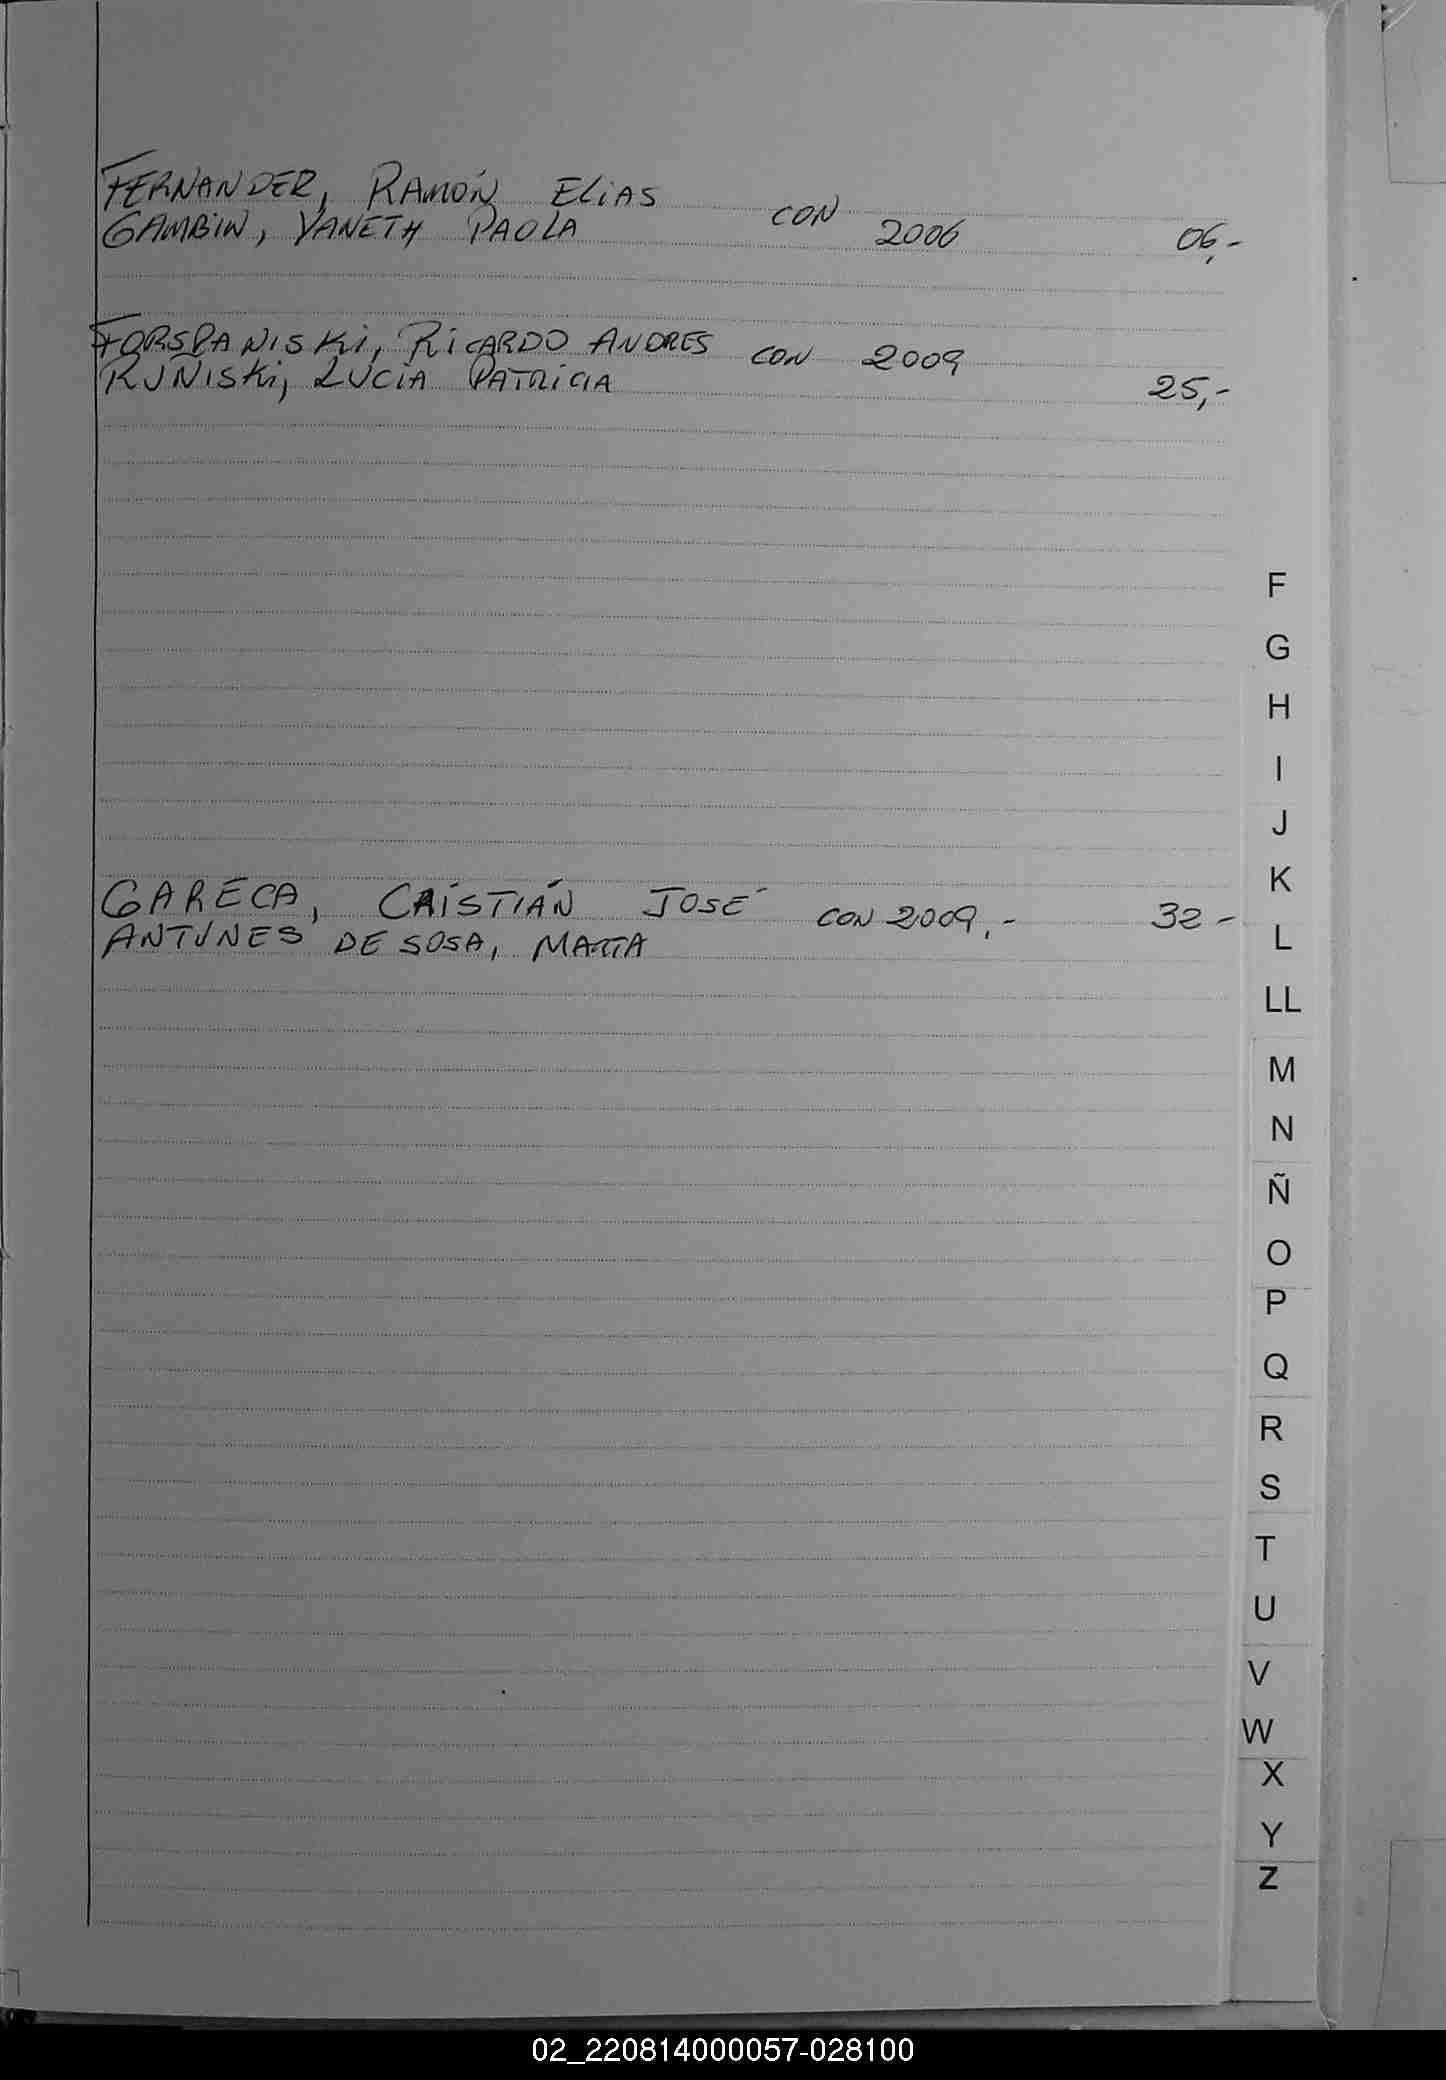 FERNANDEZ, RAMÓN ELIAS CON
GAMBIN, YANETH PAOLA 2006 06,-
FORSPANISKI, RICARDO ANDRES CON 2009
KUÑISKI, LUCIA PATRICIA 25,-
GARECA, CRISTIÁN JOSÉ CON 2009,- 32-
ANTUNES DE SOSA, MARTA
F
G
H
I
J
K
L
LL
M
N
Ñ
O
P
Q
R
S
T
U
V
W
X
Y
Z
02_220814000057-028100